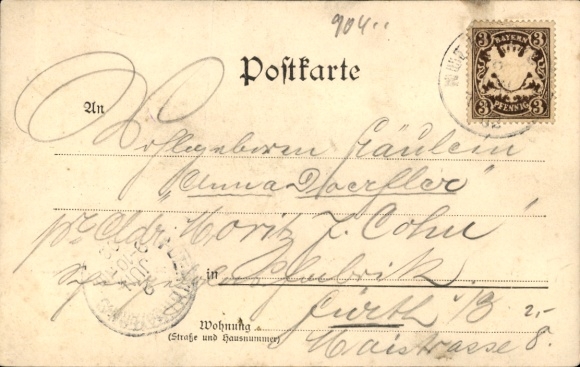 904..
3 BAYERN 3
3 PFENNIG 3
Postkarte
An
Wohlgeboren Fräulein
"Anna Doerfler"
pr. Adr. Moritz J. Cohn
in fabrik
Fürth i/B. 2,-
Wohnung
(Straße und Hausnummer)
Maistrasse 8.